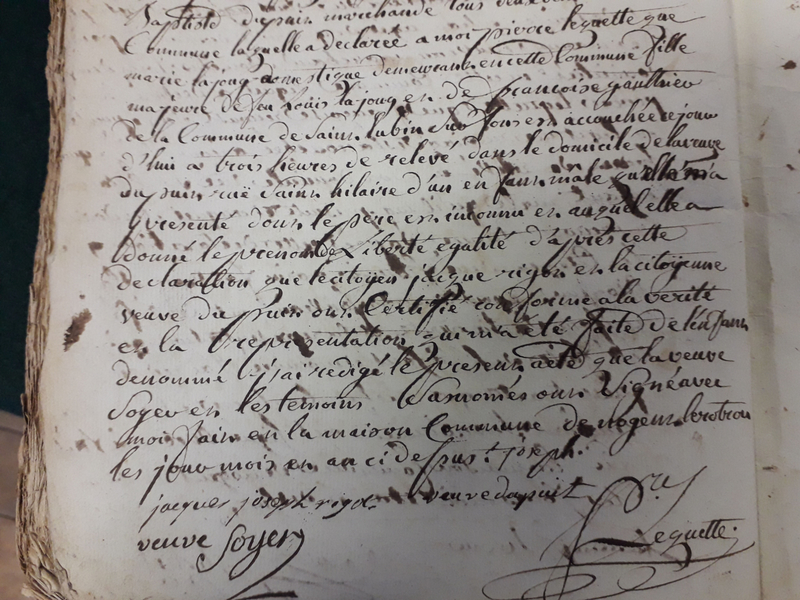 Baptiste dupuin marchande tous deux de
Commune laquelle a declarée a moi pierre lequette que
marie lajoug domestique demeurant en cette Commune fille
majeure de feu Louis lajoug et de françoise gaulthier
de la Commune de Saint lubin sur est accouchée ce jour
d'hui a trois heures de relevé dans le domicile de la veuve
dupuin ruë saint hilaire d'un enfant male quelle m'a
presenté dont le père est inconnu et auquel elle a
donné le prenom de Liberté egalité d'après cette
declarathion que le citoyen jacque rigot et la citoyenne
veuve du puin ont Certifié conforme a la verité
et la representation qui m'a été faite de l'enfant
denommé j'ai redigé le present acte que la veuve
Soyer et les temoins susnomés ont Signé avec
moi fait en la maison Commune de nogent lerotrou
les jour mois et an ci dessus. joseph.
jacques joseph rigot veuve dupuit
veuve Soyer Lequette